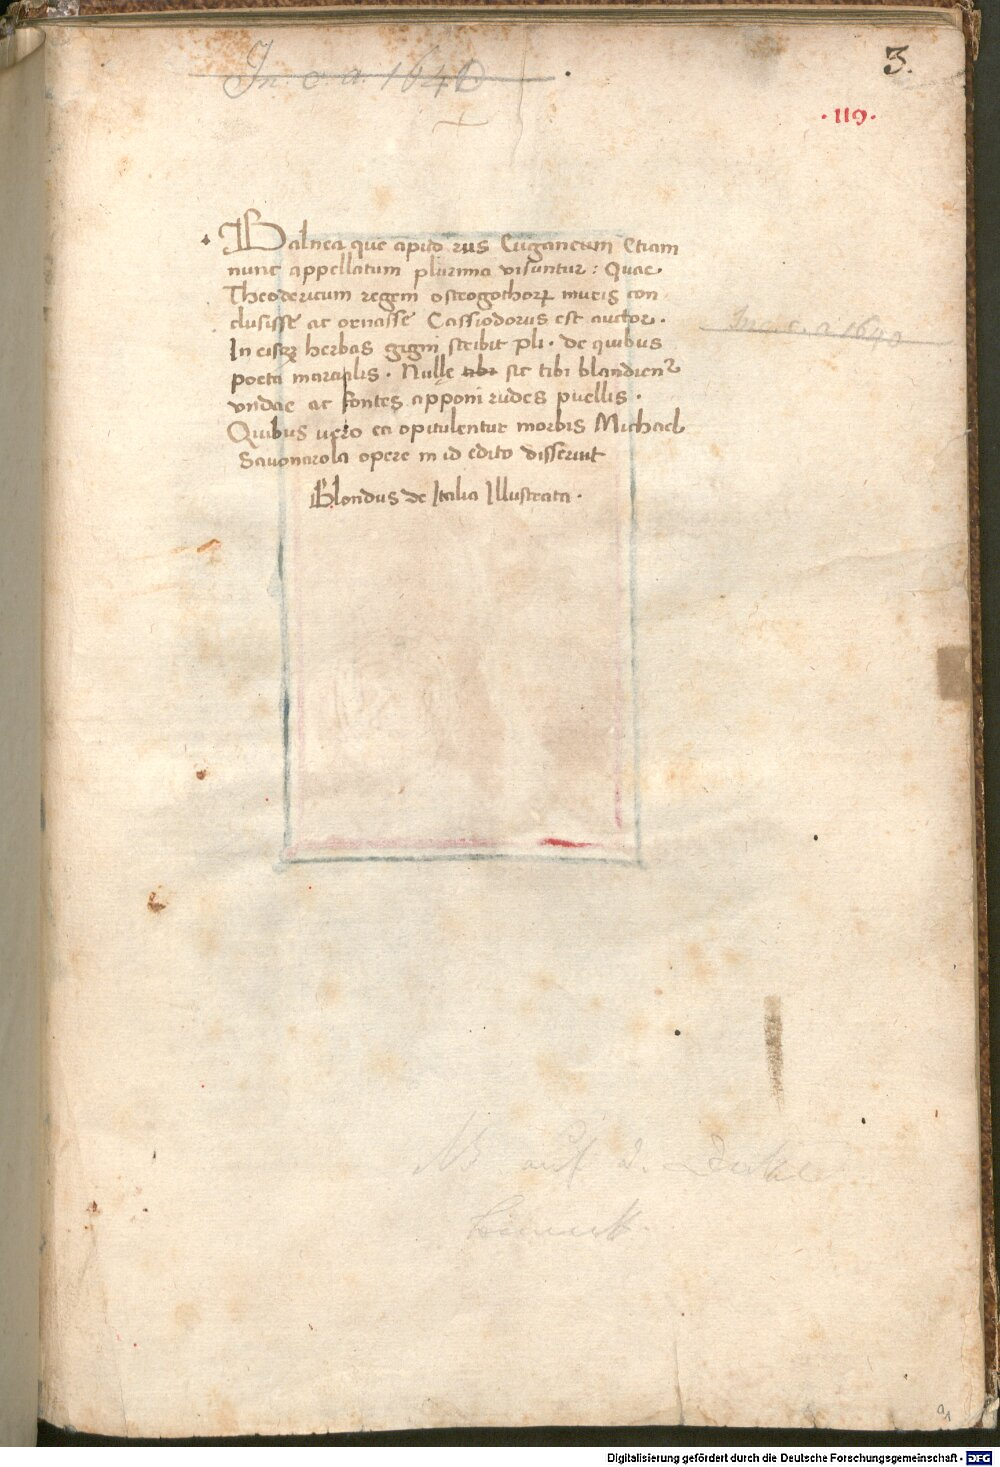 In. c. a. 1640
3.
·119·
Balnea que apud rus Euganeum Etiam
nunc appellatum plurima visuntur: Quae
Theodericum regem ostrogothoꝝ muris con
clusisse ac ornasse Cassiodorus est auctor.
Inc. c. a. 1640
In eisqꝫ herbas gigni scribit pli. de quibus
poeta marcialis. Nullę tibi sic tibi blandienᷣ
vndae ac fontes apponi rudes puellis.
Quibus uero ea opitulentur morbis Michael
Sauonarola opere in id edito disseruit
Blondus de Italia Illustrata.
NB auf d. Decke
bemerkt.
a1
Digitalisierung gefördert durch die Deutsche Forschungsgemeinschaft - DFG